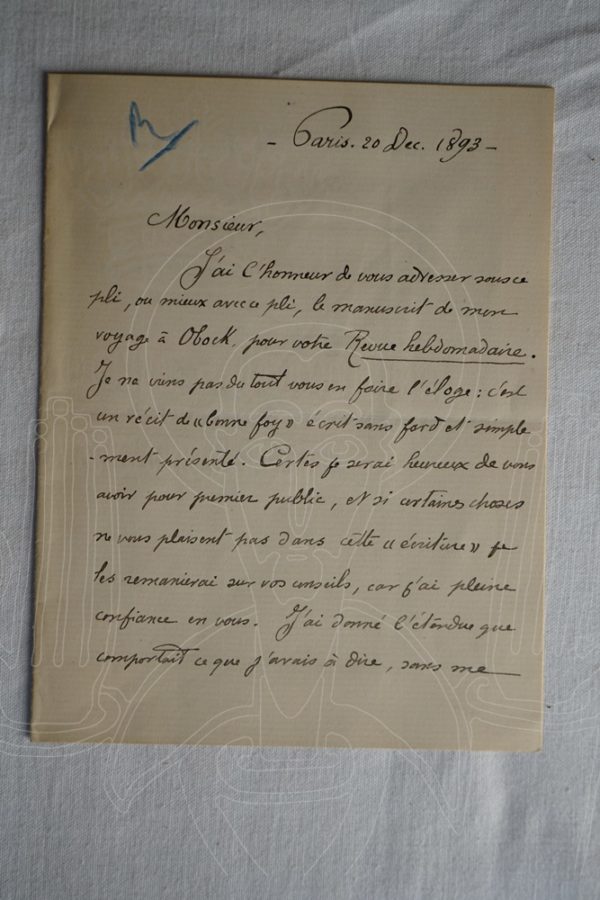 - Paris. 20 Dec. 1893 -
Monsieur,
J'ai l'honneur de vous adresser sous ce
pli, ou mieux avec ce pli, le manuscrit de mon
voyage à Obock, pour votre Revue hebdomadaire.
Je ne viens pas du tout vous en faire l'éloge : c'est
un récit de «bonne foy» écrit sans fard et simple
-ment présenté. Certes je serai heureux de vous
avoir pour premier public, et si certaines choses
ne vous plaisent pas dans cette «écriture» je
les remanierai sur vos conseils, car j'ai pleine
confiance en vous. J'ai donné l'étendue que
comportait ce que j'avais à dire, sans me